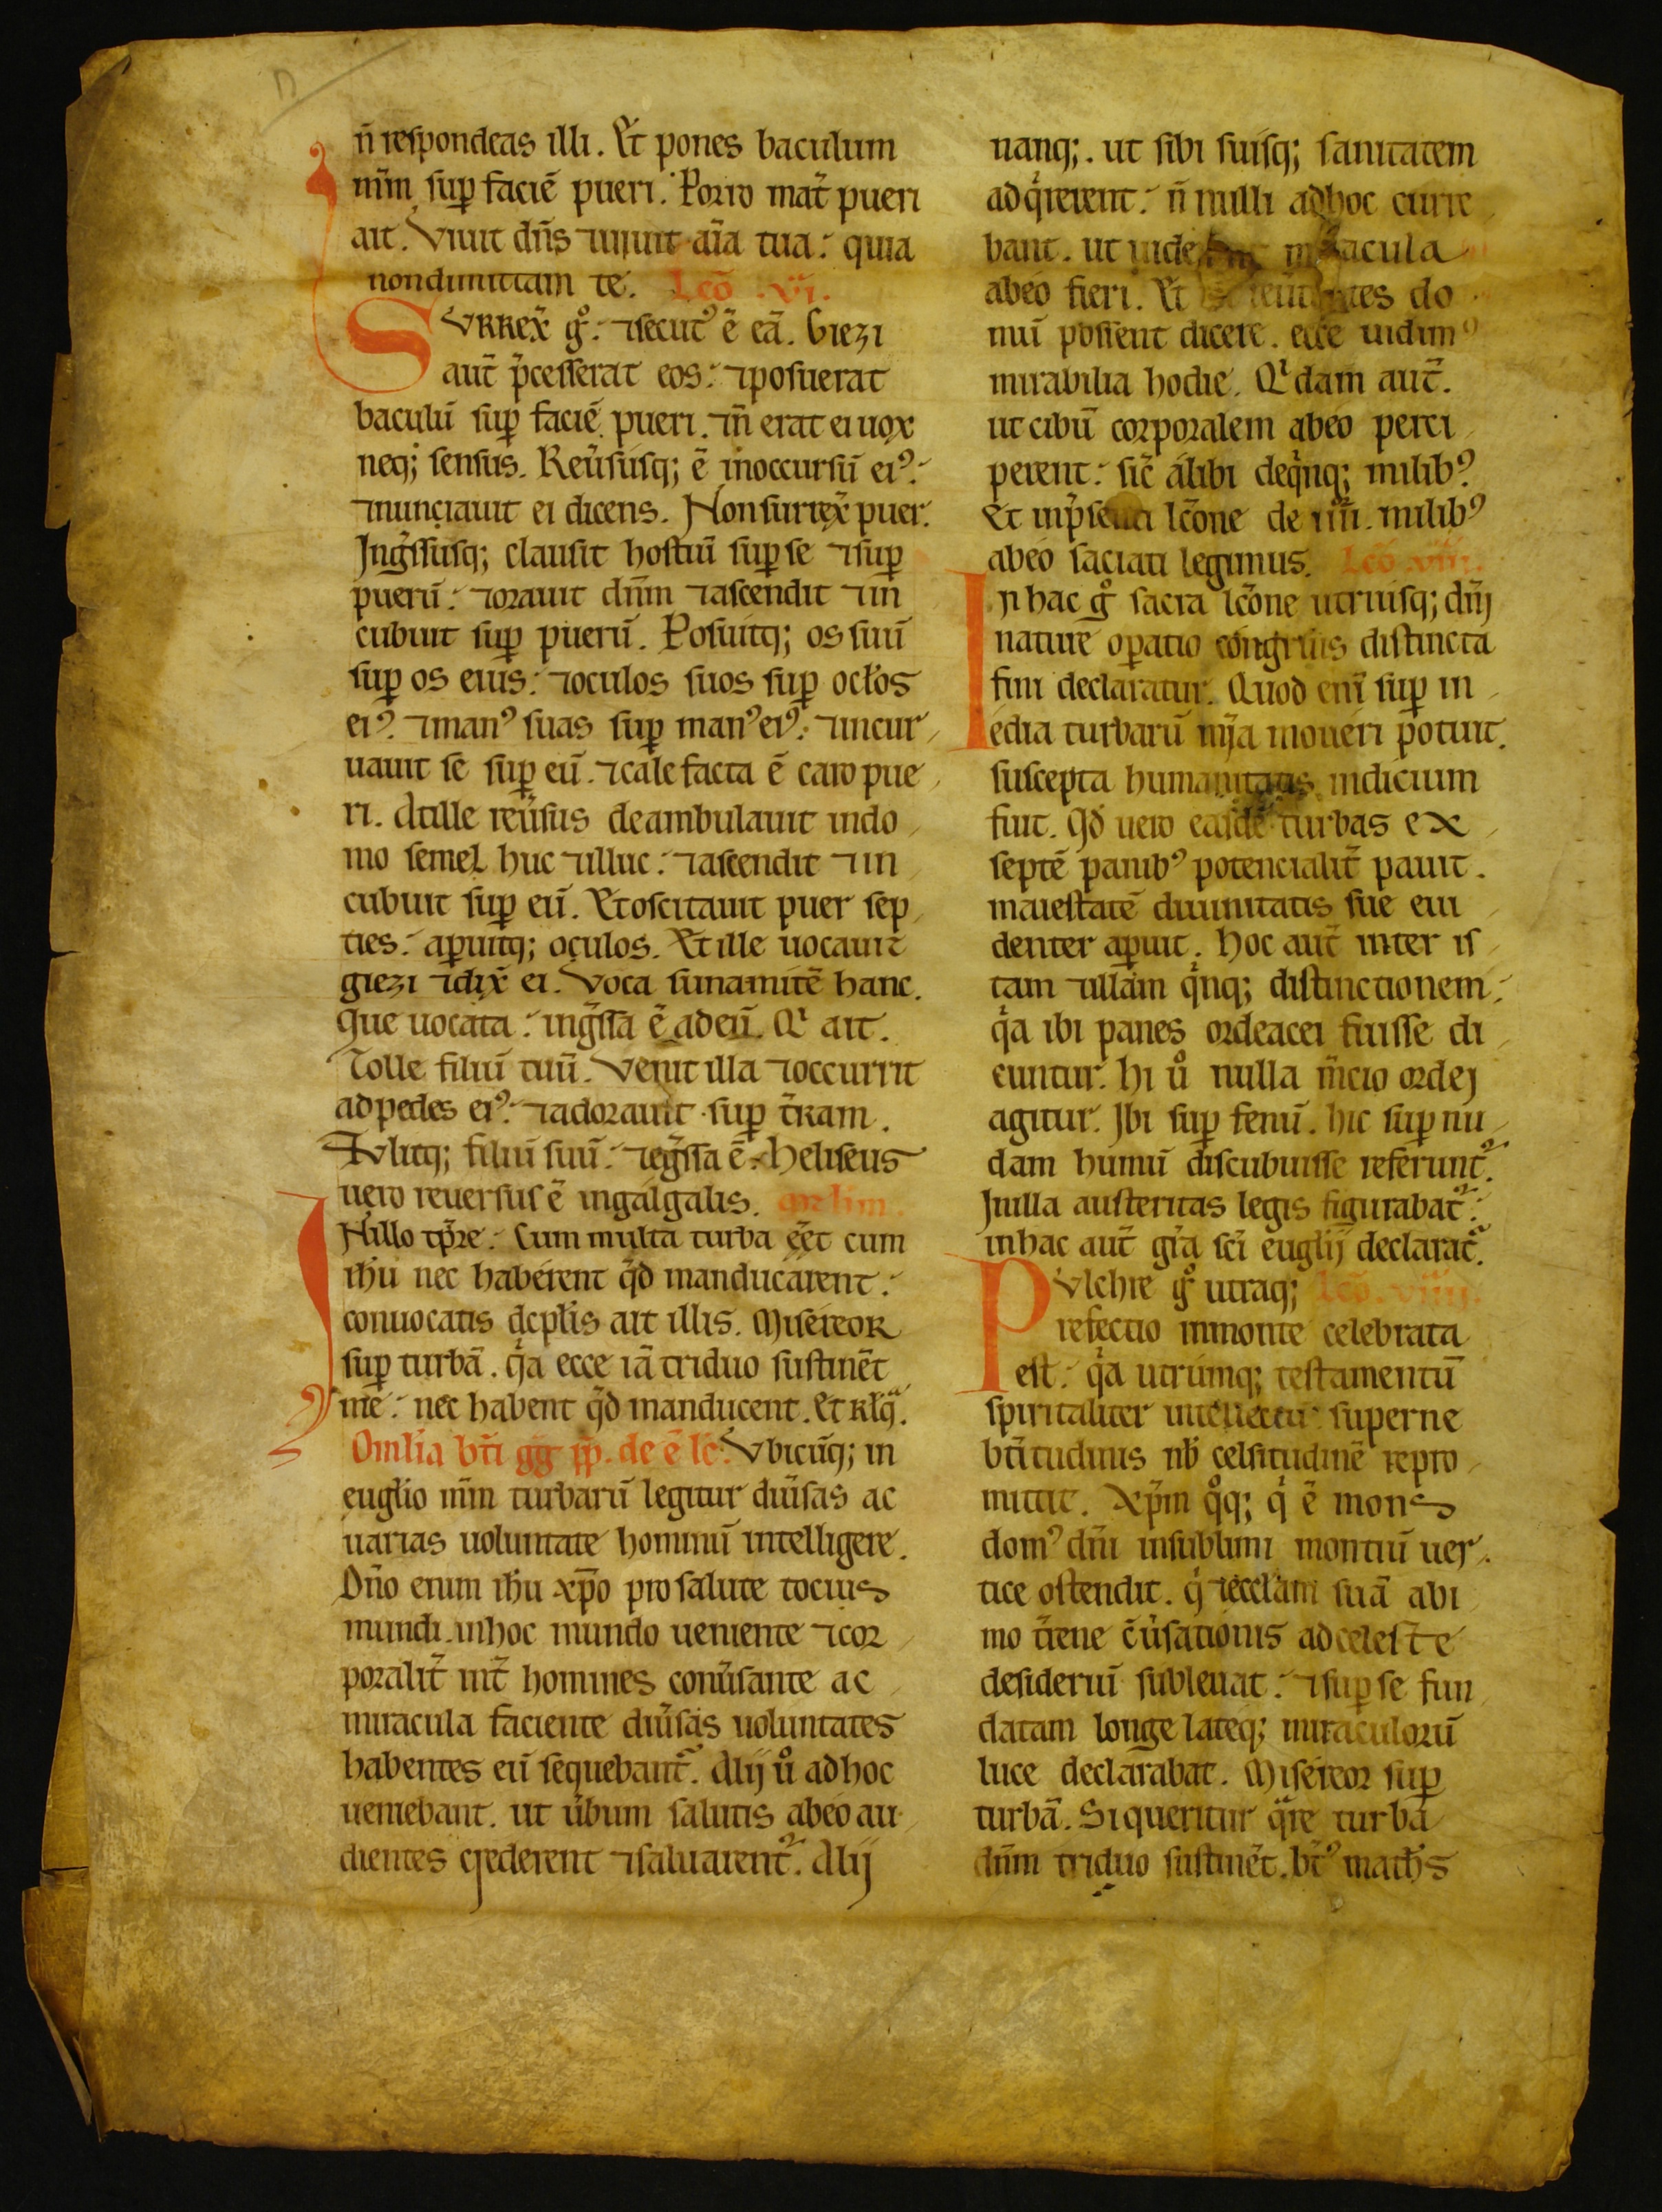 n̄ respondeas illi. Et pones baculum
mm̄ sup̱ faciē pueri. Porro mat̃ pueri
ait. Viuit dn̄s ⁊ uiuit aīa tua: quia
nondimittam te. Lc̄o .vi.
SVRREX̃ gͦ: ⁊secutꝰ ē eā. Giezi
aut̃ p̄cesserat eos: ⁊posuerat
baculū sup̱ faciē pueri. ⁊n̄ erat ei uox
neq; sensus. Reũsusq; ē inoccursū eiꝰ:
⁊nunciauit ei dicens. Non surrex̃ puer.
Ingͣssusq; clausit hostiū sup̱ se ⁊sup̱
puerū: ⁊orauit dn̄m ⁊ascendit ⁊in
cubuit sup̱ puerū. Posuitq; os suū
sup̱ os eius: ⁊oculos suos sup̱ ocl̄os
eiꝰ: ⁊manꝰ suas sup̱ manꝰ eiꝰ: ⁊incur
uauit se sup̱ eū. ⁊calefacta ē caro pue
ri. Atille reũsus deambulauit indo
mo semel huc ⁊illuc: ⁊ascendit ⁊in
cubuit sup̱ eū. Etoscitauit puer sep
ties: ap̱uitq; oculos. Et ille uocauit
giezi ⁊dix̃ ei. Voca sunamitē hanc.
Que uocata: ingͣssa ē adeū. Qͥ ait.
Tolle filiū tuū. Venit illa ⁊occurrit
adpedes eiꝰ: ⁊adorauit sup̱ t̃ram.
Tvlitq; filiū suū: ⁊egͣssa ē. Heliseus
uero reuersus ē ingalgalis.
INillo tp̄re: Cum multa turba eēt cum
ihu̅ nec haberent qͩd manducarent:
conuocatis dcpl̄is ait illis. Misereor
sup̱ turbā. qͥa ecce iā triduo sustinēt
me: nec habent qͩd manducent. Et rlq̄.
Omlia bt̄i gg̅ pp̄. de ē lc̄. Vbicūq; in
euglio mm̄ turbarū legitur diũsas ac
uarias uoluntate hominū intelligere.
Dn̄o enim ihu̅ xp̄o pro salute tocius
mundi. inhoc mundo ueniente ⁊cor
poralit̃ int̃ homines conũsante ac
miracula faciente diũsas uoluntates
habentes eū sequebant̃. Alij uͦ adhoc
ueniebant. ut ũbum salutis abeo au
dientes crederent ⁊saluarent̃. Alij
nanq;. ut sibi suisq; sanitatem
adqͥrerent: n̄ nulli adhoc curre
bant. ut miracula
abeo fieri. Et do
mui possent dicere. ecce uidimꝰ
mirabilia hodie. Qͥdam aut̃.
ut cibū corporalem abeo perci
perent: sic̃ alibi deqͥnq; milibꝰ
Et inp̄senti lc̄one de iiii. milibꝰ
abeo saciati legimus. Lc̄o .viii.
In hac gͦ sacra lc̄one utriusq; dn̄j
nature op̱atio congruis distincta
fini declaratur. Quod enī sup̱ in
edia turbarū mīa moueri potuit.
suscepta humanitatis indicium
fuit. Qd̄ uero easdē turbas ex
septē panibꝰ potencialit̃ pauit.
maiestatē diuinitatis sue eui
denter ap̱uit. Hoc aut̃ inter is
tam ⁊illam qͥnq; distinctionem:
qͥa ibi panes ordeacei fuisse di
cuntur. Hi uͦ nulla m̄cio ordej
agitur. Ibi sup̱ fenū. hic sup̱ nu
dam humū discubuisse referunt̃.
Inilla austeritas legis figurabat̃:
inhac aut̃ gr̄a sc̄i euglij declarat̃.
PVlchre gͦ utraq; Lc̄o. viiij.
refectio inmonte celebrata
est: qͥa utrumq; testamentū
spiritaliter intellectū superne
bt̄itudinis nb̄ celsitudinē repro
mittit. Xp̄m qͦq; qͥ ē mons
domꝰ dn̄i insublimi montiū uer
tice ostendit. qͥ ⁊eccl̄am suā abi
mo t̃rene c̄ũsationis adceleste
desideriū subleuat: ⁊sup̱ se fun
datam longe lateq; miraculorū
luce declarabat. Misereor sup̱
turbā. Siqueritur qͣre turba
dn̄m triduo sustinēt. bt̄ꝰ math̄s